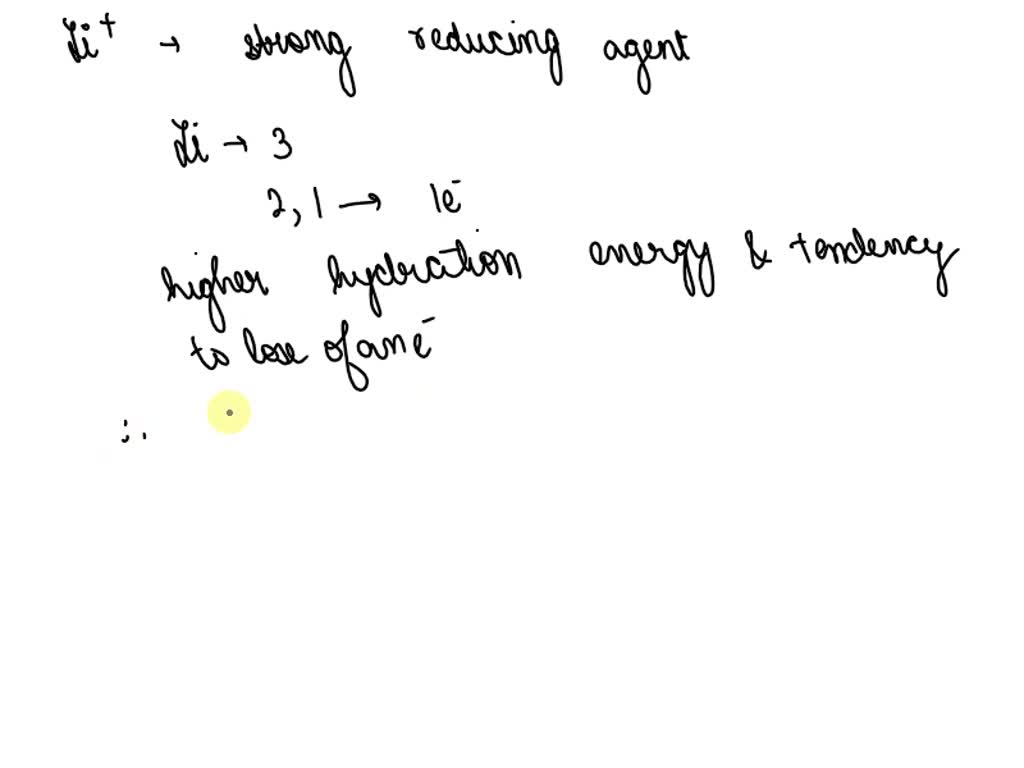 Li⁺ → strong reducing agent
Li → 3
2, 1 → 1e⁻
higher hydration energy & tendency
to lose of an e⁻
∴